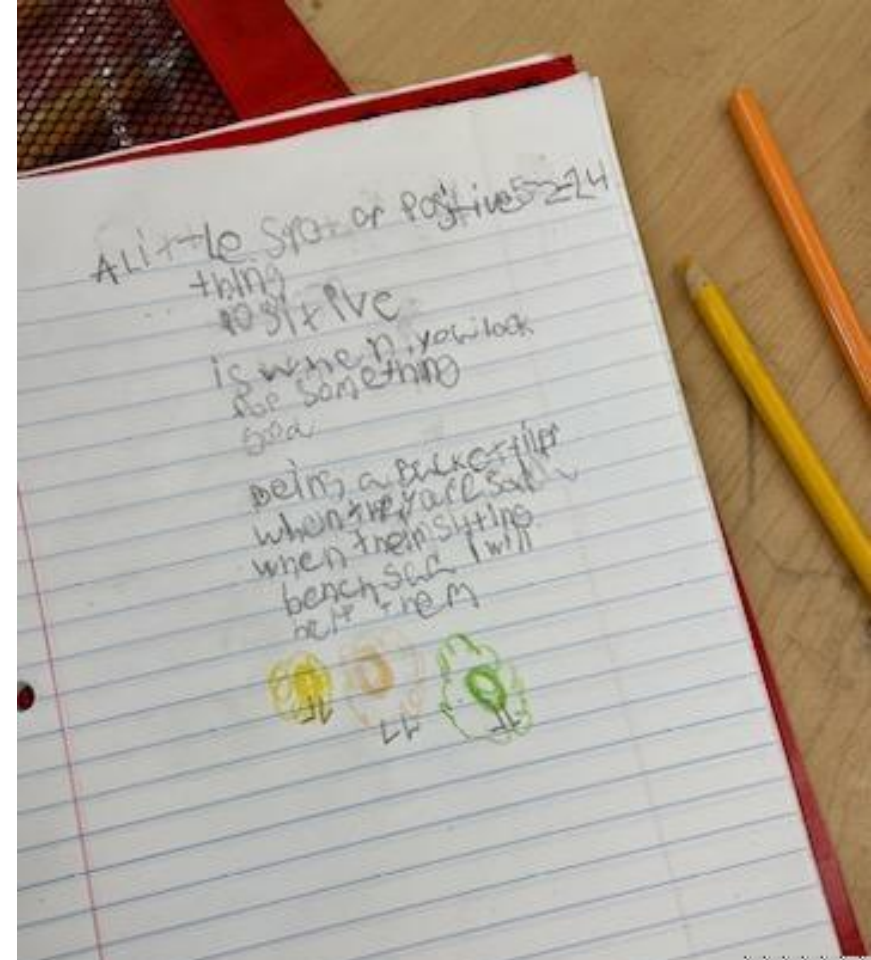 A Little Spot of Positive 5-2-24
thing
Positive
is when you look
for something
good
Being a Bucket filler
when they are sad
when their sitting
bench sad I will
help them